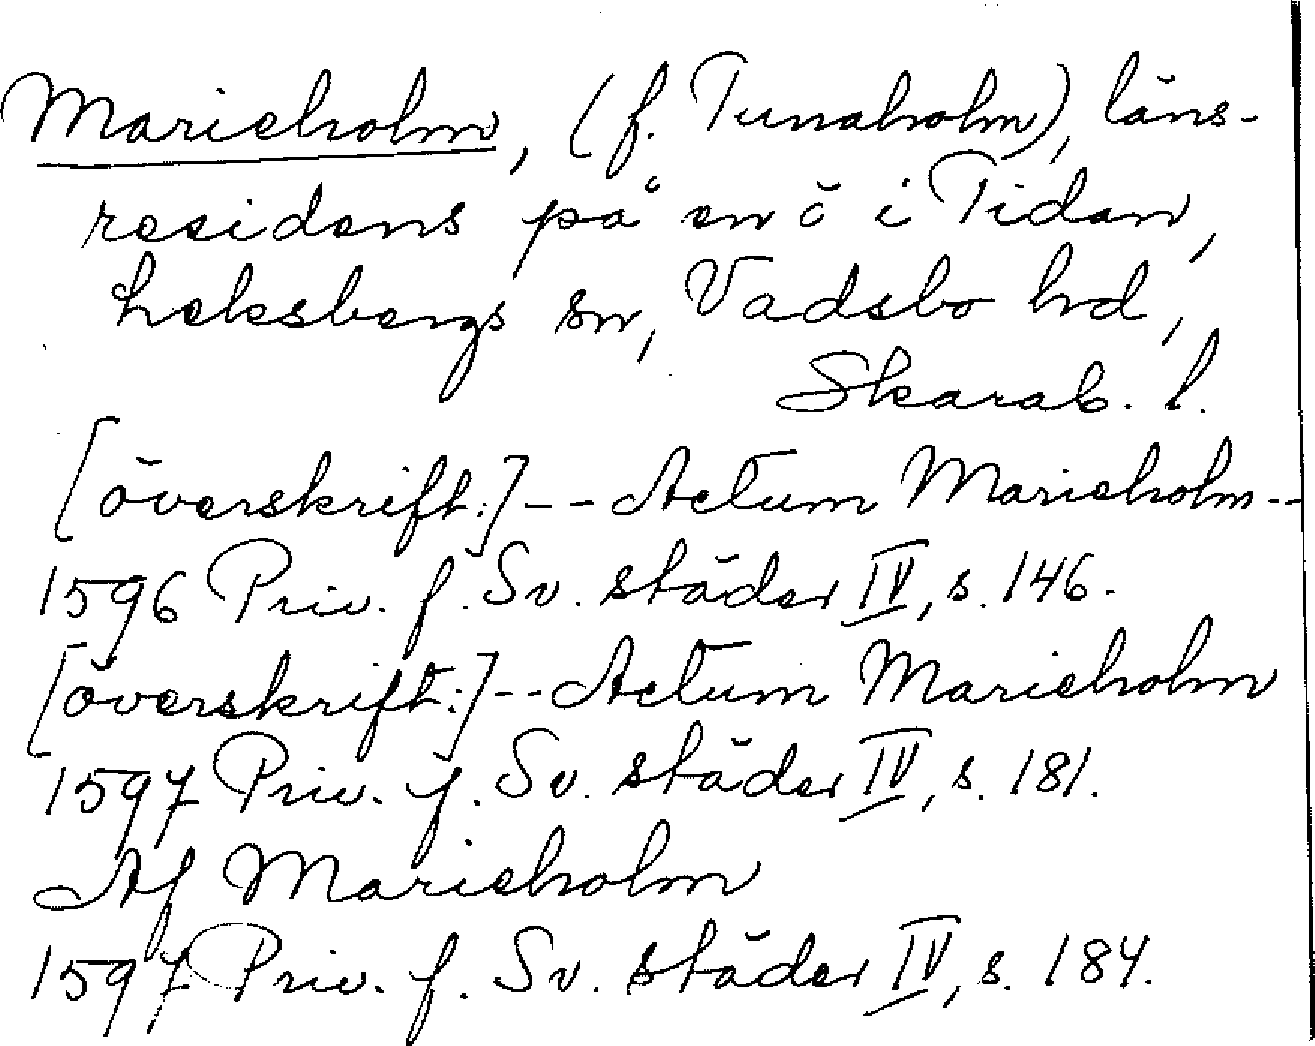 Marieholm, (f. Tunaholm), läns-
residens på en ö i Tidan,
Leksbergs sn, Vadsbo hd,
Skarab. l.
[överskrift:]--Actum Marieholm--
1596 Priv. f. Sv. städer IV, s. 146.
[överskrift:]--Actum Marieholm
1597 Priv. f. Sv. städer IV, s. 181.
Af Marieholm
1597 Priv. f. Sv. städer IV, s. 184.